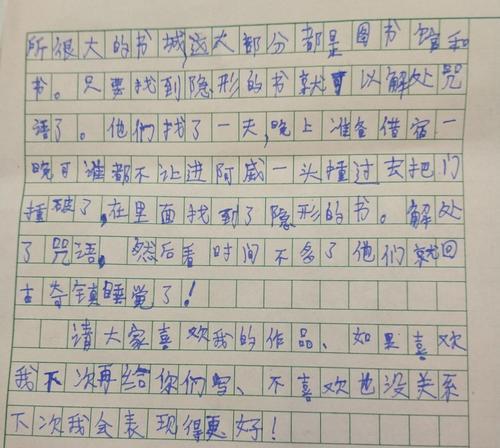 所很大的书城,这大部分都是图书馆和
书。只要找到隐形的书就可以解处咒
语了。他们找了一天,晚上准备借宿一
晚可谁都不让进阿威一头撞过去把门
撞破了,在里面找到了隐形的书。解处
了咒语,然后看时间不多了他们就回
古奇镇睡觉了!
请大家喜欢我的作品、如果喜欢
我下次再给你们写、不喜欢也没关系
下次我会表现得更好!